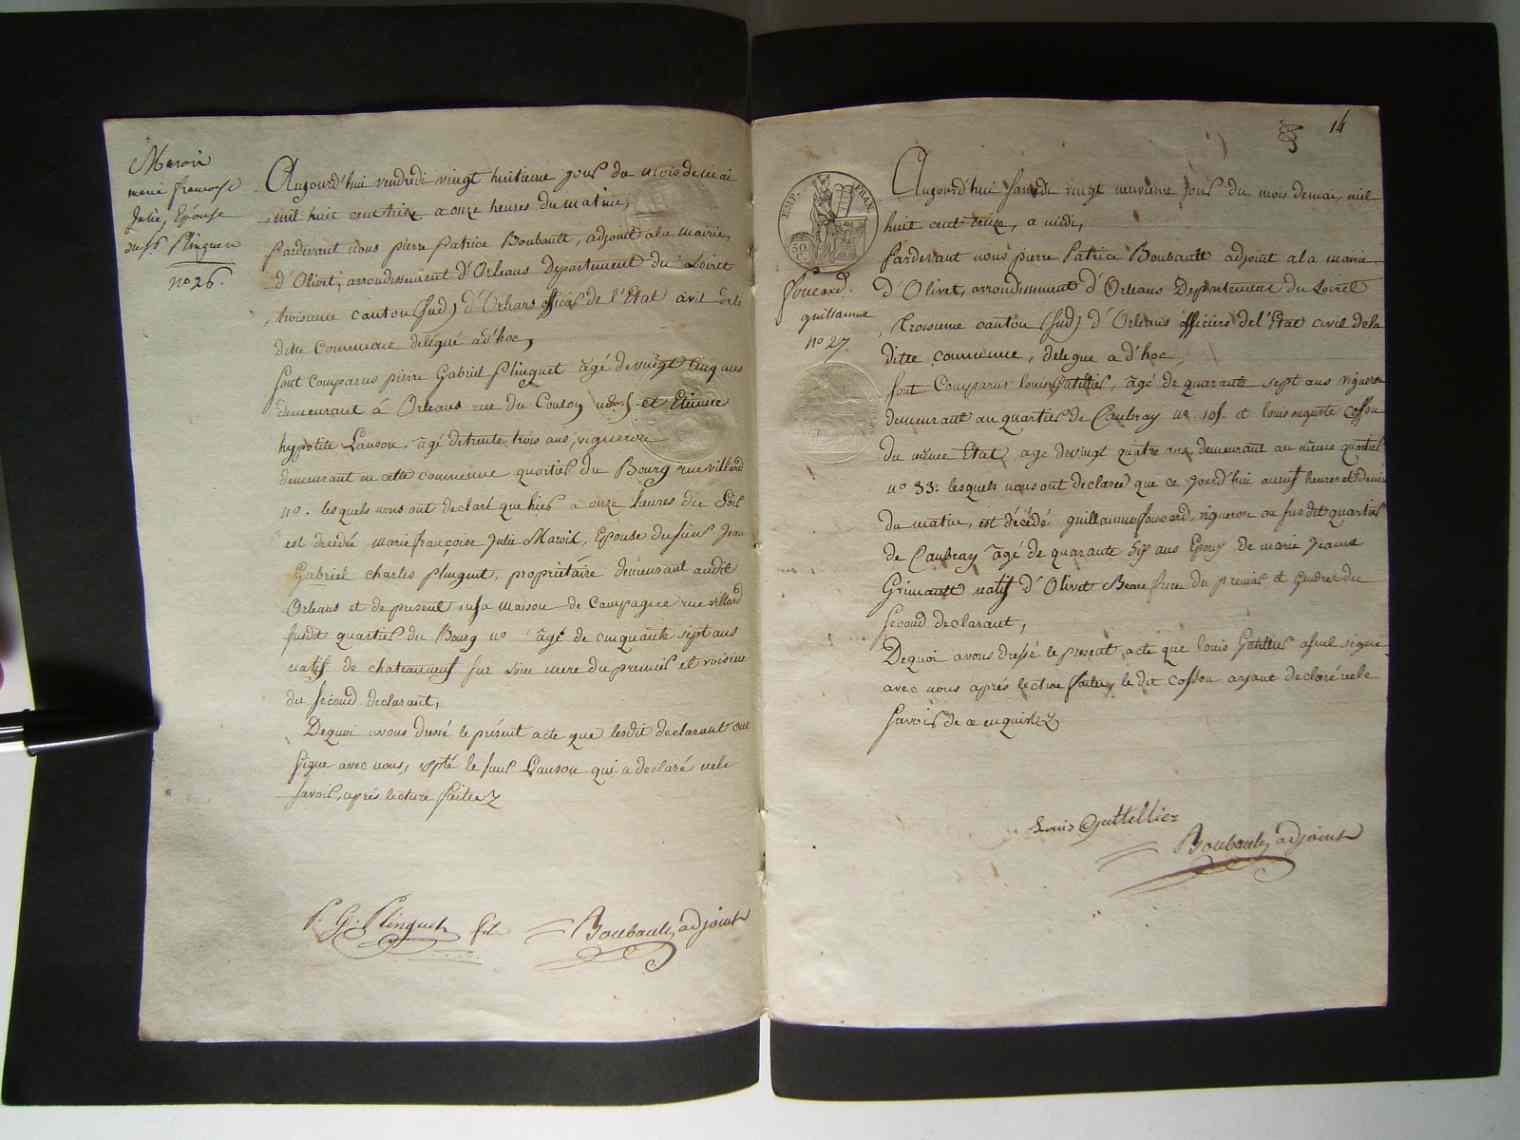 Maroir
marie françoise
Julie, Epouse
du Sr. Plinguet
n° 26.
Aujourd'hui vendredi vingt huitieme jour du mois de mai
mil huit cent treize a onze heures du matin,
Pardevant nous pierre Patrice Boubault, adjoint a la mairie
d'Olivet, arrondissement d'Orleans Departement du Loiret
troisieme canton (Sud) d'Orleans officier de l'Etat civil de la
ditte Commune délégué ad'hoc,
Sont comparus pierre Gabriel Plinguet agé de vingt cinq ans
demeurant à Orleans rue du et Etienne
hyppolite Lanson, agé de trente trois ans, vigneron
demeurant en cette commune quartier du Bourg rue
n°. lesquels nous ont declaré que hier a onze heures du Soir
est decedée marie françoise Julie Maroir, Epouse du sieur Jean
Gabriel charles Plinguet, propriétaire demeurant audit
Orleans et de present en sa maison de Campagne rue
susdit quartier du Bourg n° agé de cinquante sept ans
natif de chateauneuf sur Loire mere du premier et voisine
du Second declarant,
Dequoi avons dressé le présent acte que lesdit declarant ont
Signe avec nous, le Sieur Lanson qui a declaré ne le
Savoir, après lecture faite
P. G. Plinguet fils Boubault, adjoint
14
EMP. FRAN.
50 C.
Foucard.
guillaume
n° 27
Aujourd'hui Samedi vingt neuvieme Jour du mois de mai, mil
huit cent treize, a midi,
Pardevant nous pierre Patrice Boubault adjoint a la mairie
d'Olivet, arrondissement d'Orleans Departement du Loiret
troisieme canton (Sud) d'Orleans officier de l'Etat civil de la
ditte commune, delegue a d'hoc,
Sont Comparus louis Gatellier, agé de quarante sept ans vigneron
demeurant au quartier de Caubray n° 101. et louis auguste Cosson
du même Etat, age de vingt quatre ans demeurant au même quartier
n° 33: lesquels nous ont declaré que ce jourd'hui a neuf heures et demie
du matin, est décédé guillaume foucard, vigneron au susdit quartier
de Caubray agé de quarante six ans Epoux de marie Jeanne
Grimault natif d'Olivet Beau frere du premier et gendre du
second declarant,
Dequoi avons dressé le present acte que louis Gatellier a seul signé
avec nous aprés lecture faite, le dit Cosson ayant declaré ne le
Savoir de ce enquis
Louis Gattellier
Boubault, adjoint